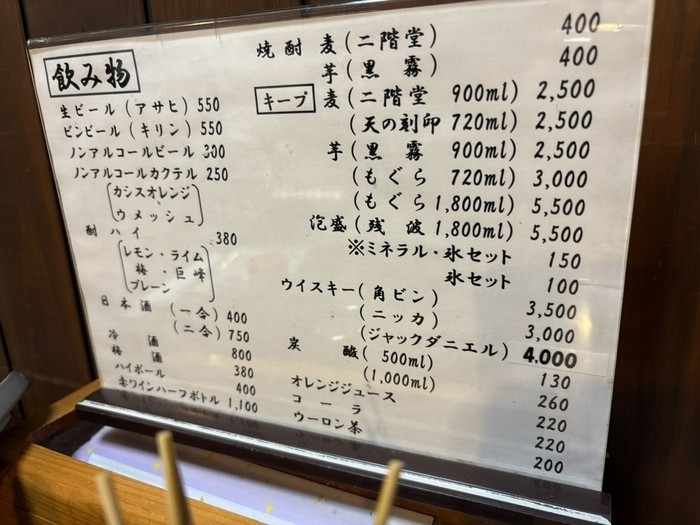 飲み物
生ビール(アサヒ) 550
ビンビール(キリン) 550
ノンアルコールビール 300
ノンアルコールカクテル 250
(カシスオレンジ
ウメッシュ)
酎ハイ 380
(レモン・ライム
梅・巨峰
プレーン)
日本酒(一合) 400
(二合) 750
冷酒 800
梅酒 380
ハイボール 400
赤ワインハーフボトル 1,100
焼酎 麦(二階堂) 400
芋(黒霧) 400
キープ 麦(二階堂 900ml) 2,500
(天の刻印 720ml) 2,500
芋(黒霧 900ml) 2,500
(もぐら 720ml) 3,000
(もぐら 1,800ml) 5,500
泡盛(残波 1,800ml) 5,500
※ミネラル・氷セット 150
氷セット 100
ウイスキー(角ビン) 3,500
(ニッカ) 3,000
(ジャックダニエル) 4.000
炭酸(500ml) 130
(1,000ml) 260
オレンジジュース 220
コーラ 220
ウーロン茶 200